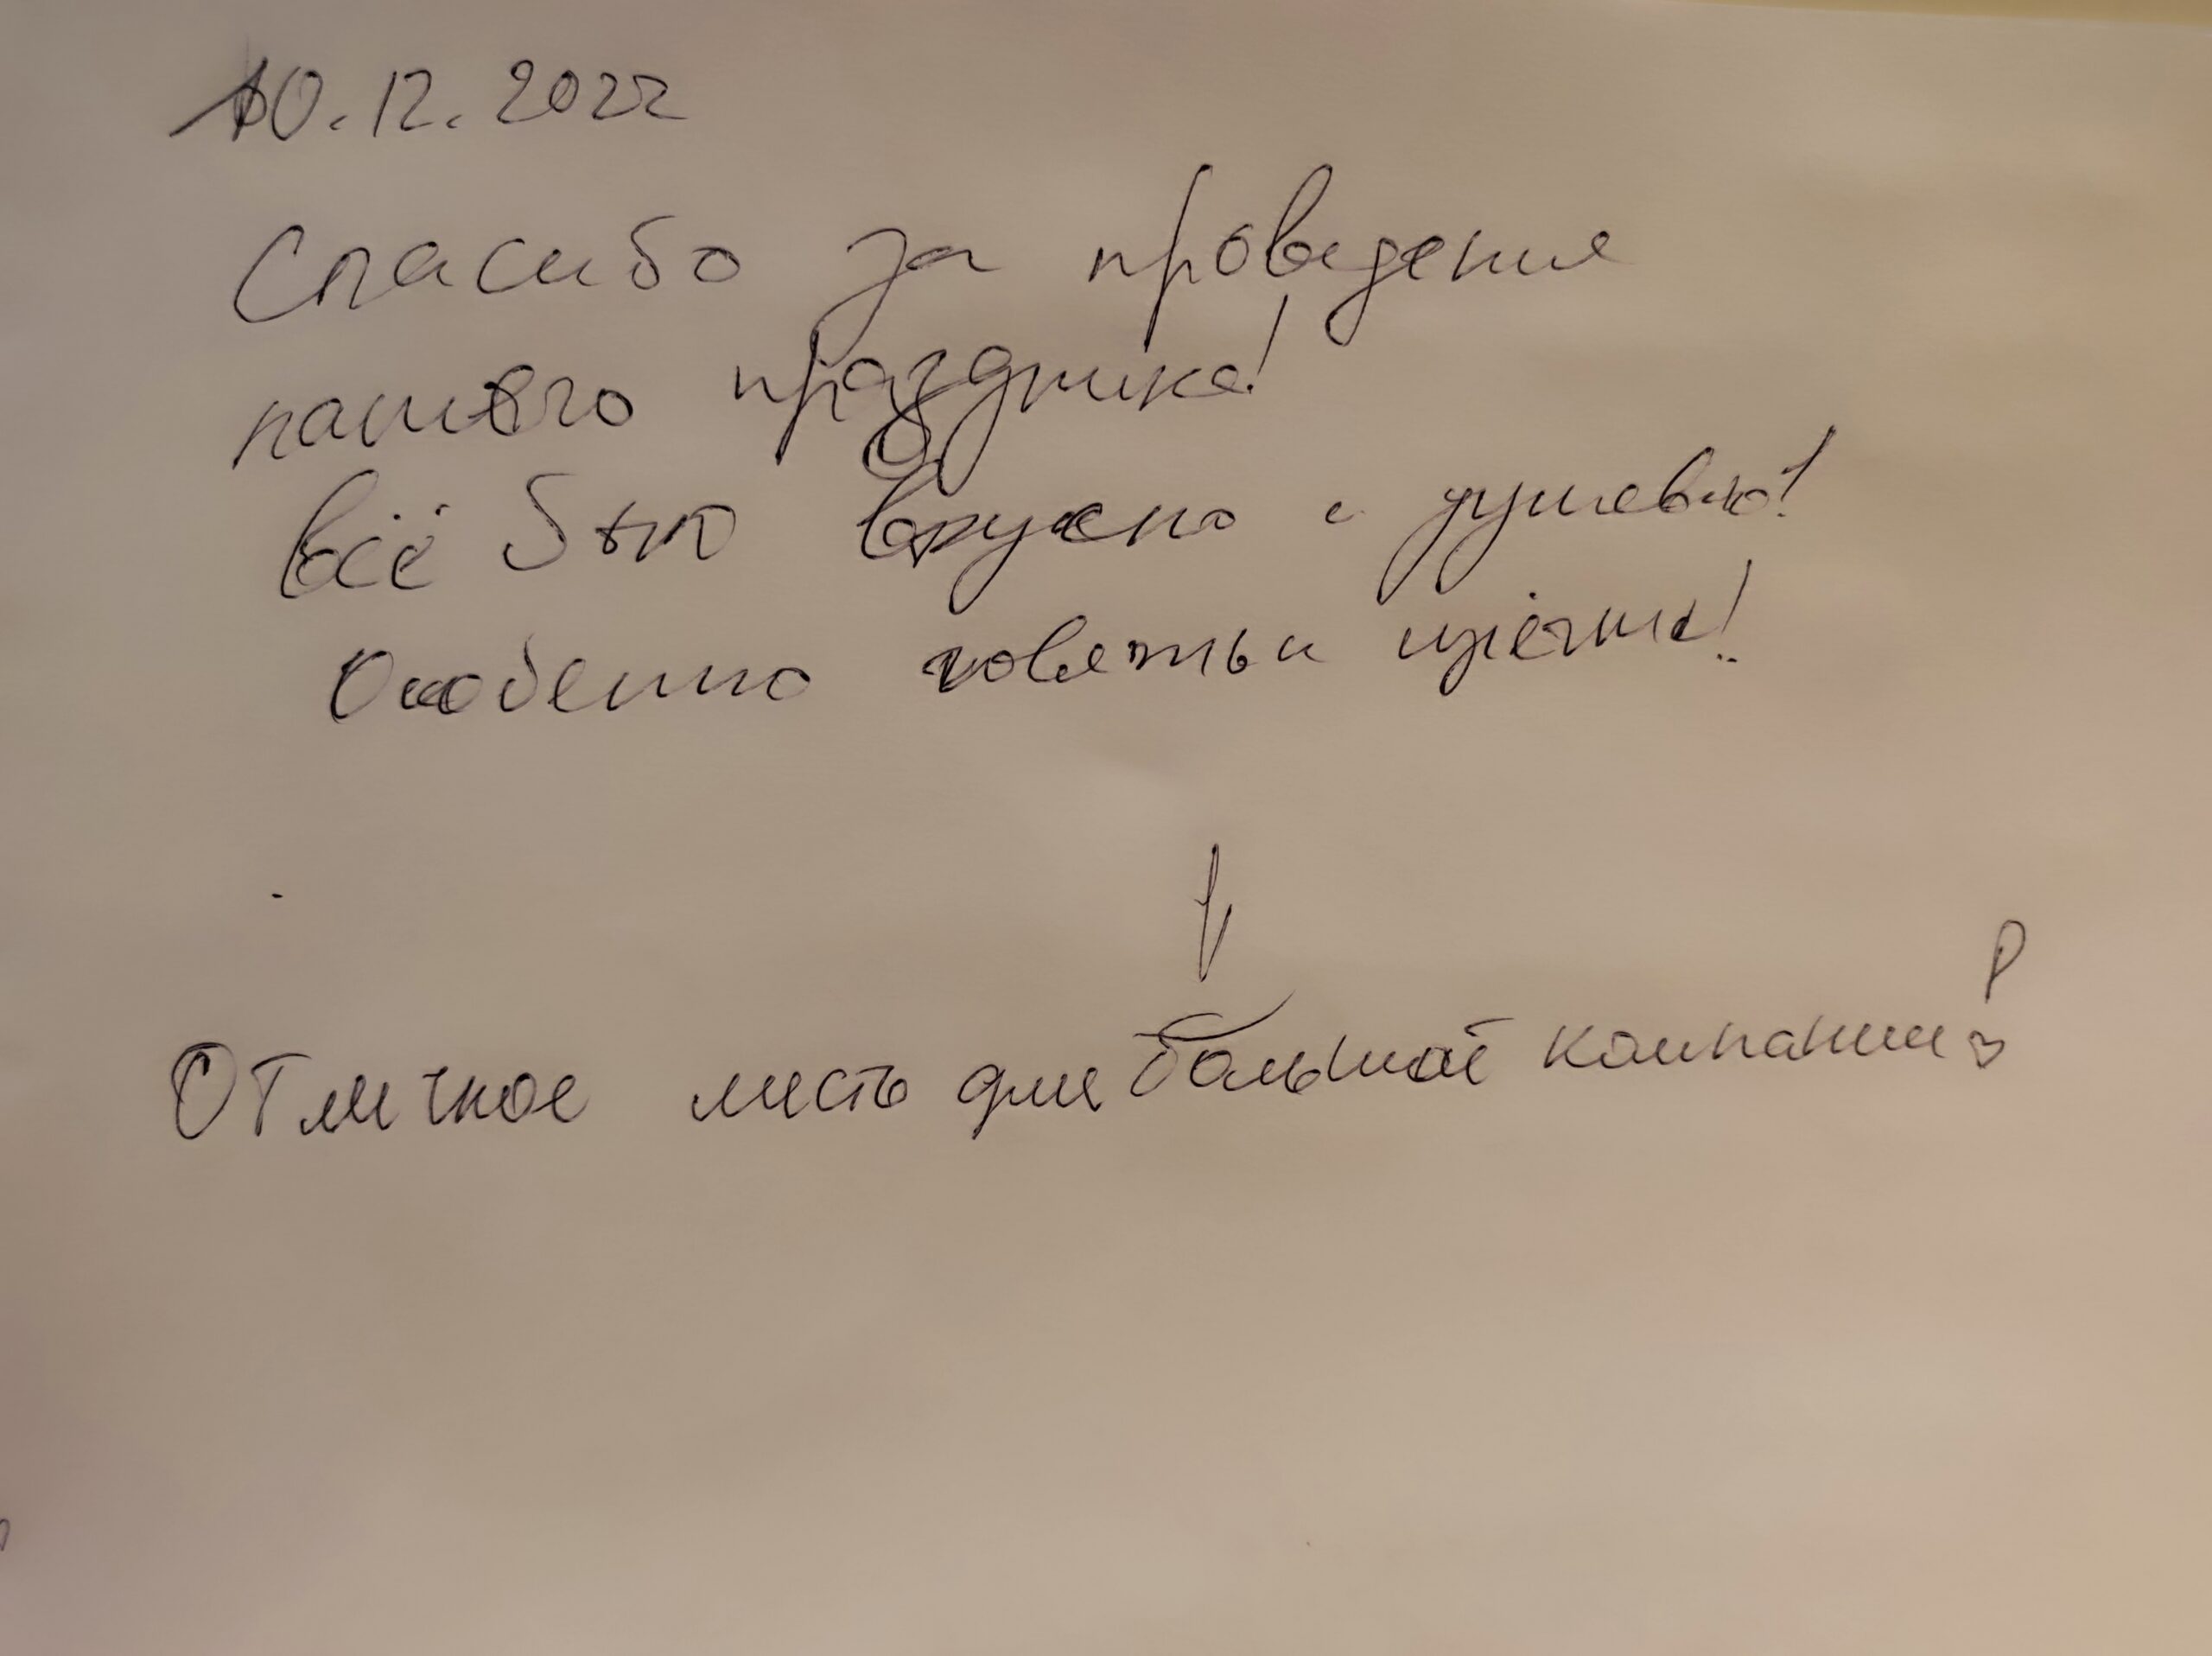 10.12.2022
Спасибо за проведение
нашего праздника!
Всё было вкусно и душевно!
Особенно говяжьи щёчки!
Отличное место для большой компании!